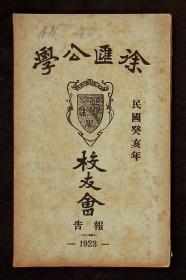 徐匯公學
民國癸亥年
校友會
報告
— 1923 —